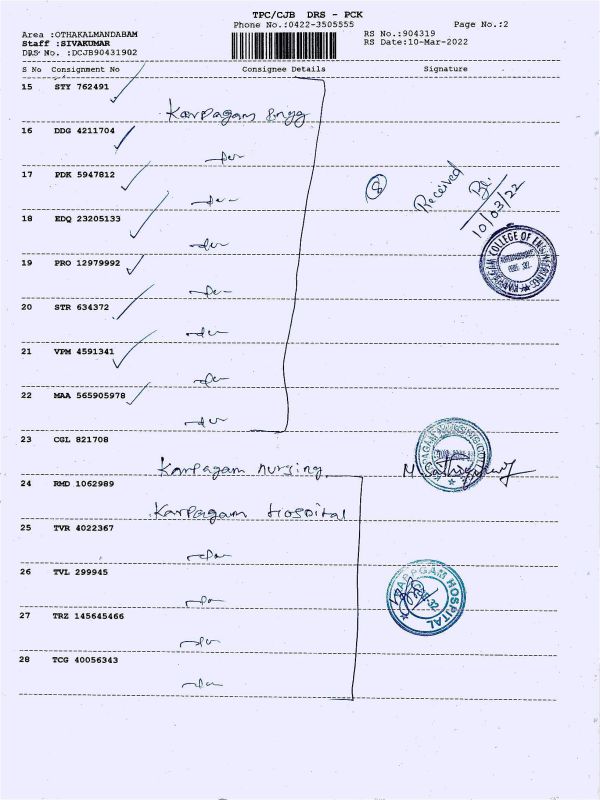 TPC/CJB DRS - PCK
Phone No.:0422-3505555
Page No.:2
Area :OTHAKALMANDABAM
RS No.:904319
Staff :SIVAKUMAR
RS Date:10-Mar-2022
DRS No. :DCJB90431902
S No Consignment No Consignee Details Signature
15 STY 762491
Karpagam Engg
16 DDG 4211704
17 PDK 5947812
8
Received
10/03/22
18 EDQ 23205133
COLLEGE OF ENGINEERING
19 PRO 12979992
20 STR 634372
21 VPM 4591341
22 MAA 565905978
23 CGL 821708
Karpagam nursing
24 RMD 1062989
Karpagam Hospital
25 TVR 4022367
26 TVL 299945
KARPAGAM HOSPITAL
27 TRZ 145645466
28 TCG 40056343